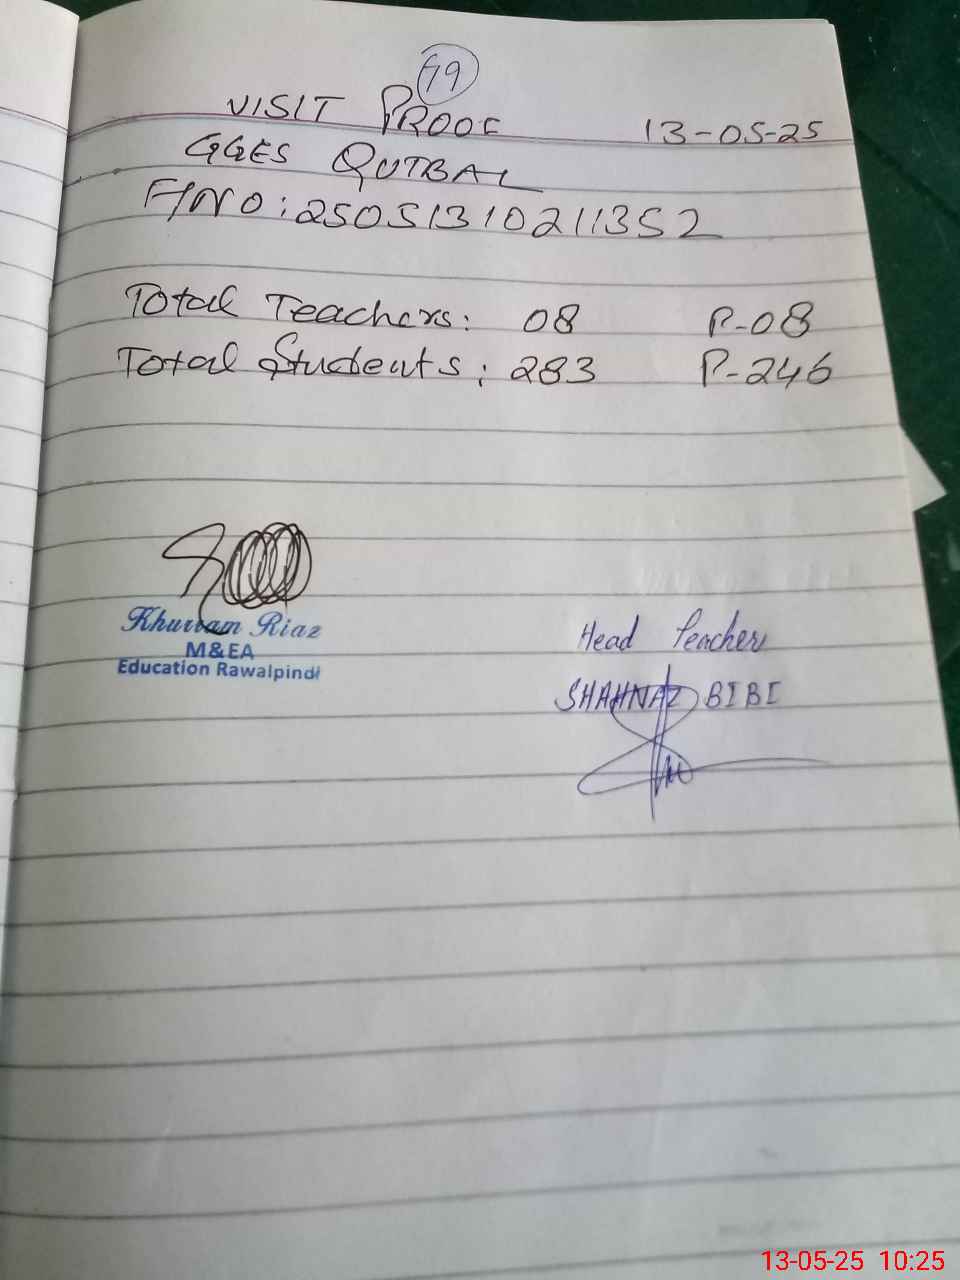 79
VISIT PROOF 13-05-25
GGES QUTBAL
F/NO: 25051310211352
Total Teachers: 08 P-08
Total Students: 283 P-246
Khurram Riaz
M&EA
Education Rawalpindi
Head Teacher
SHAHNAZ BIBI
13-05-25 10:25